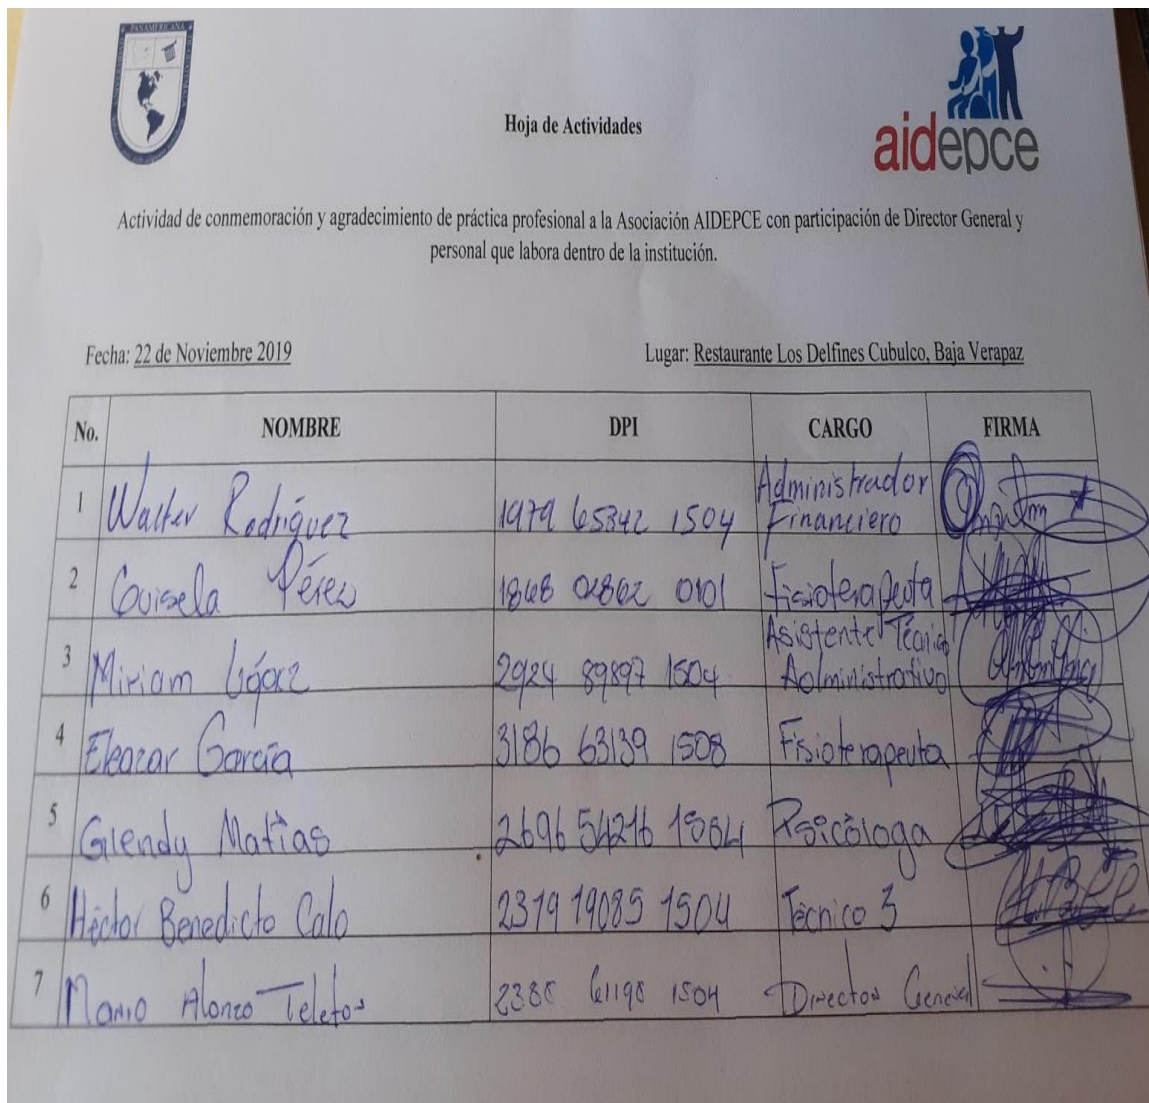 PANAMERICANA
Hoja de Actividades
aidepce
Actividad de conmemoración y agradecimiento de práctica profesional a la Asociación AIDEPCE con participación de Director General y
personal que labora dentro de la institución.
Fecha: 22 de Noviembre 2019 Lugar: Restaurante Los Delfines Cubulco, Baja Verapaz
No. NOMBRE DPI CARGO FIRMA
1 Walter Rodríguez 1979 65342 1504 Administrador
Financiero
2 Guisela Pérez 1848 02862 0101 Fisioterapeuta
3 Miriam 2924 89897 1504 Asistente Técnico
Administrativo
4 Eleazar García 3186 63139 1508 Fisioterapeuta
5 Glendy Matías 2696 54216 1504 Psicóloga
6 Héctor Benedicto Calo 2379 19085 1504 Técnico 3
7 Mario Alonzo 2388 61198 1504 Director General